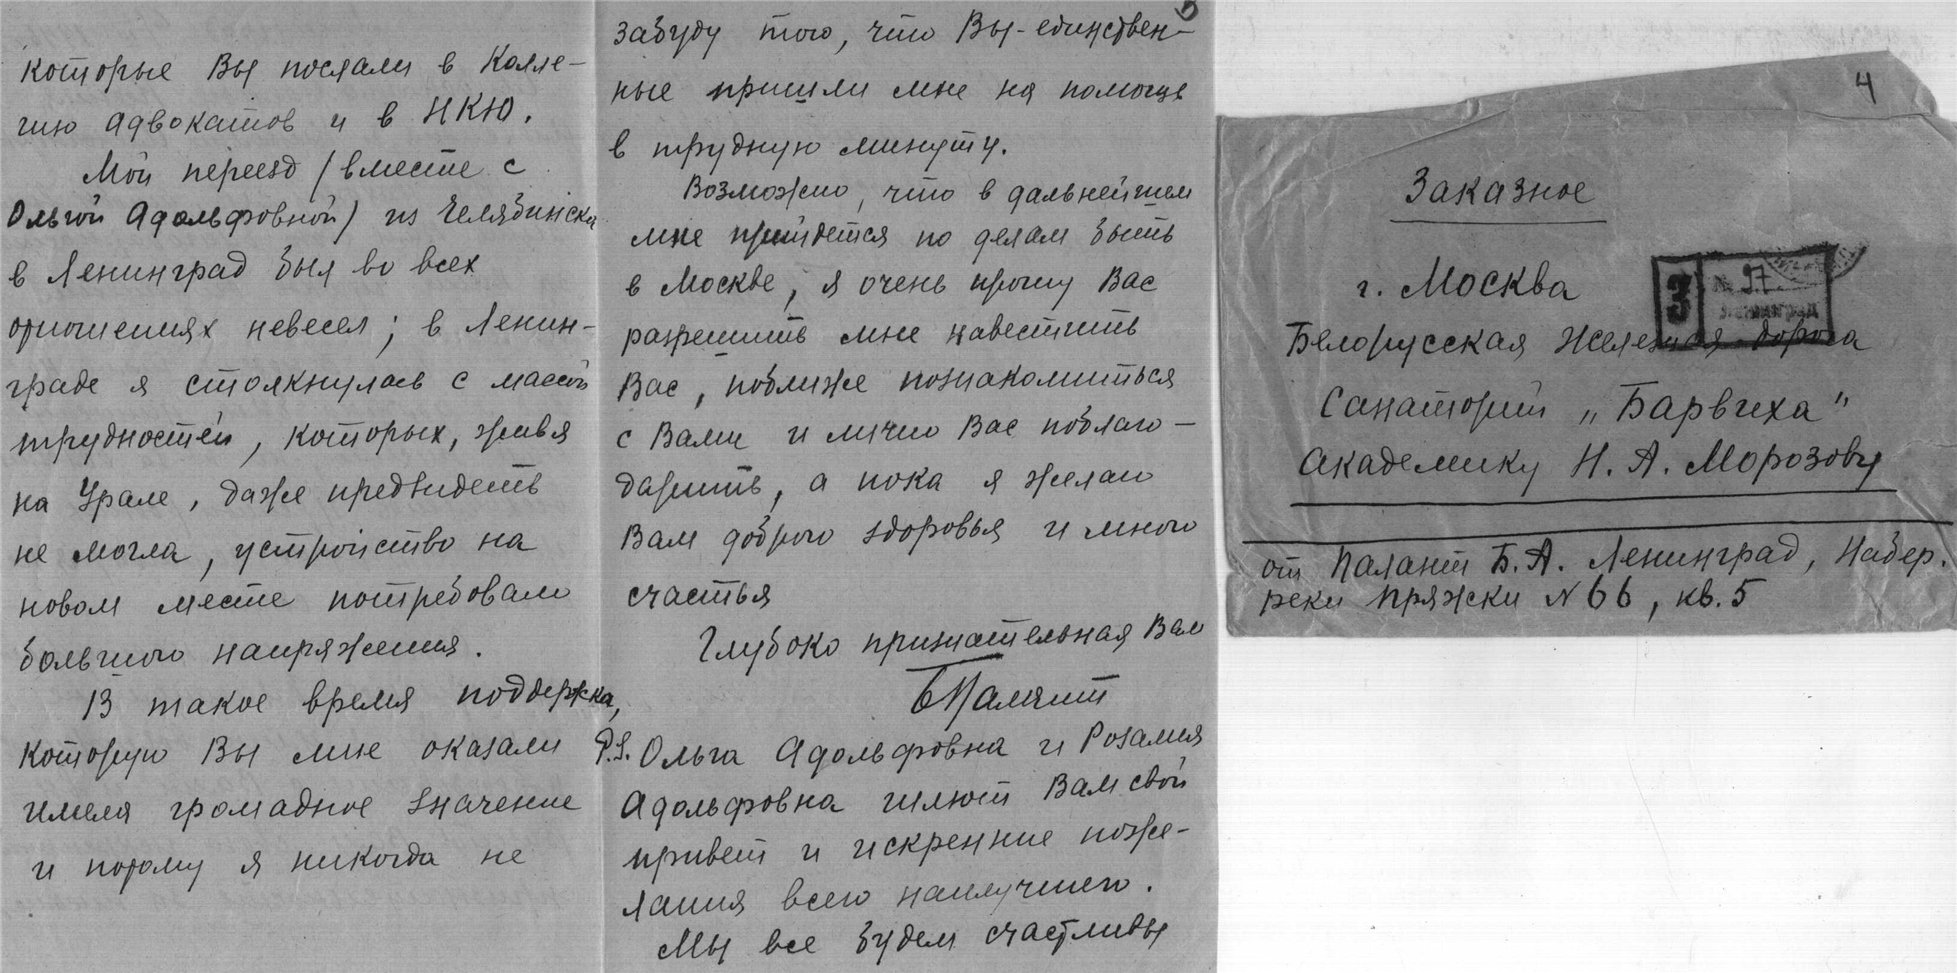 которые Вы послали в Колле-
гию адвокатов и в НКЮ.
Мой переезд (вместе с
Ольгой Адольфовной) из Челябинска
в Ленинград был во всех
отношениях невесел; в Ленин-
граде я столкнулась с массой
трудностей, которых, живя
на Урале, даже предвидеть
не могла, устройство на
новом месте потребовало
большого напряжения.
В такое время поддержка,
которую Вы мне оказали
имела громадное значение
и потому я никогда не
5
забуду того, что Вы - единствен-
ные пришли мне на помощь
в трудную минуту.
Возможно, что в дальнейшем
мне прийдется по делам быть
в Москве, я очень прошу Вас
разрешить мне навестить
Вас, поближе познакомиться
с Вами и лично Вас поблаго-
дарить, а пока я желаю
Вам доброго здоровья и много
счастья
Глубоко признательная Вам
БПалант
P.S. Ольга Адольфовна и Розалия
Адольфовна шлют Вам свой
привет и искренние поже-
лания всего наилучшего.
Мы все будем счастливы
4
Заказное
г. Москва
№ 97
Ленинград
Белорусская железная дорога
Санаторий „Барвиха"
Академику Н. А. Морозову
от Палант Б. А. Ленинград, Набер.
реки Пряжки №66, кв. 5